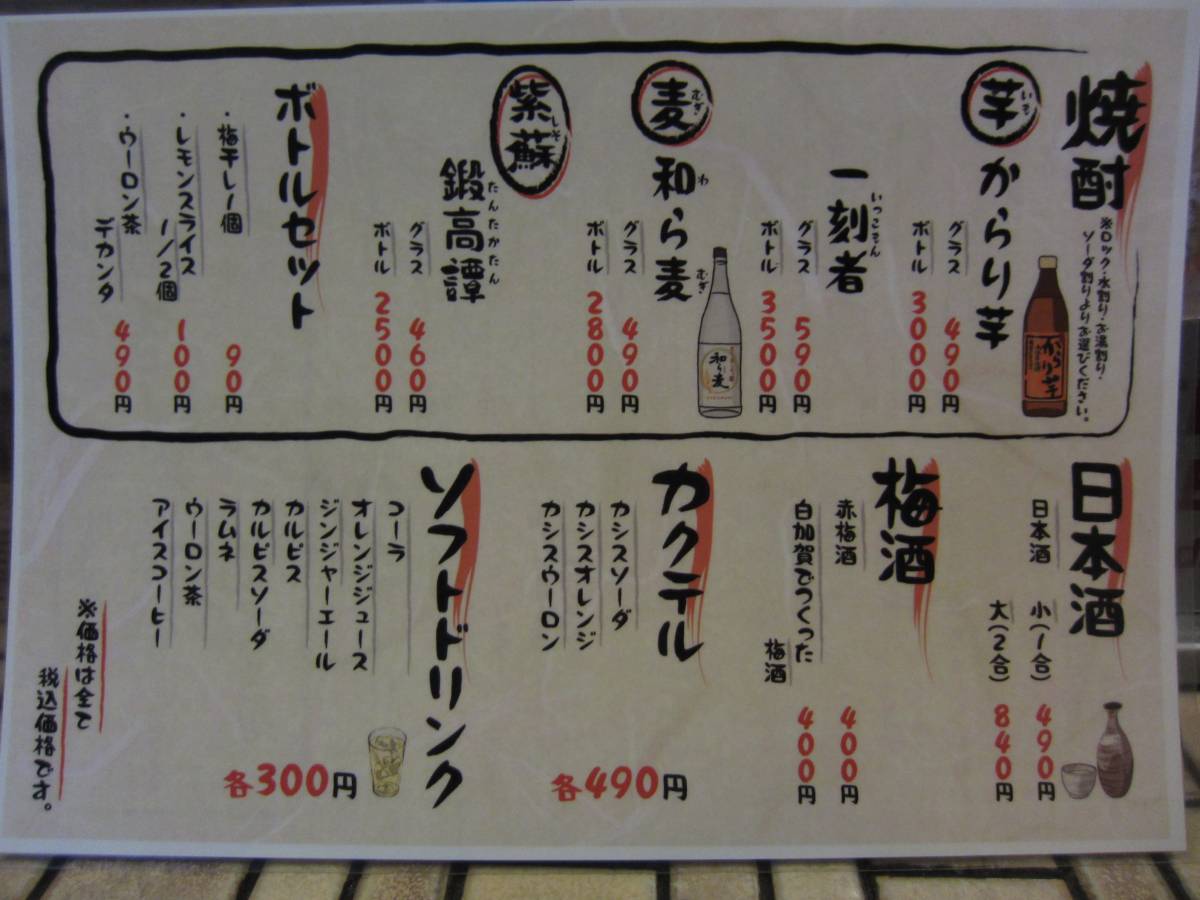 焼酎
※ロック・水割り・お湯割り・
ソーダ割りよりお選びください。
芋
いも
からり芋
グラス 490円
ボトル 3000円
一刻者
いっこもん
グラス 590円
ボトル 3500円
麦
むぎ
和ら麦
わ むぎ
グラス 490円
ボトル 2800円
紫蘇
しそ
鍛高譚
たんたかたん
グラス 460円
ボトル 2500円
ボトルセット
・梅干し1個 90円
・レモンスライス
1/2個 100円
・ウーロン茶
デカンタ 490円
からり芋
和ら麦
日本酒
日本酒 小(1合) 490円
大(2合) 840円
梅酒
赤梅酒 400円
白加賀でつくった
梅酒 400円
カクテル
カシスソーダ
カシスオレンジ
カシスウーロン
各490円
ソフトドリンク
コーラ
オレンジジュース
ジンジャーエール
カルピス
カルピスソーダ
ラムネ
ウーロン茶
アイスコーヒー
各300円
※価格は全て
税込価格です。